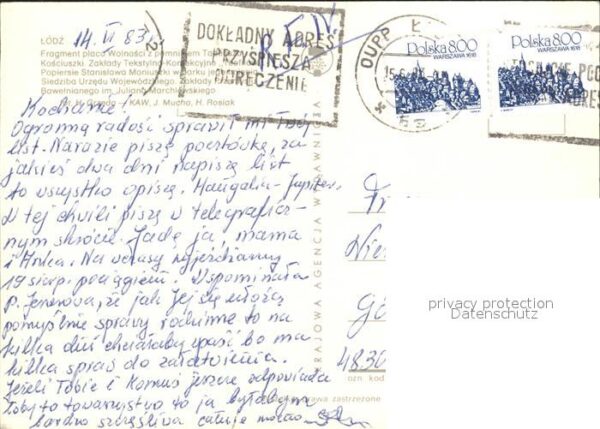 ŁÓDŹ 14. VI 83
Fragment placu Wolności z pomnikiem
Kościuszki Zakłady Tekstylno
Popiersie Stanisława Moniuszki w parku jego
Siedziba Urzędu Wojewódzkiego, Zakłady
Bawełnianego im. Juliana Marchlewskiego
KAW, J. Mucha, H. Rosiak
DOKŁADNY ADRES
PRZYSPIESZA
DORĘCZENIE
DUPP Ł
Polska 8.00
WARSZAWA 1618
Polska 8.00
WARSZAWA 1618
Kochanie!
Ogromną radość sprawił mi Twój
list. Narazie piszę pocztówkę, za
jakieś dwa dni napiszę list
to wszystko opiszę.
W tej chwili piszę w telegraficz-
nym skrócie. Jadę ja, mama
i Na wczasy wyjeżdżamy
19 sierp. pociągiem. Wspominała
p. że jak Jej się ułożą
pomyślnie sprawy rodzinne to na
kilka dni chciałaby wpaść bo ma
kilka spraw do załatwienia.
Jeżeli Tobie i jeszcze odpowiada
łoby to towarzystwo to ja byłabym
bardzo szczęśliwa całuję mocno
KRAJOWA AGENCJA WYDAWNICZA
Nie
4830
ozn kod
zastrzeżone
privacy protection
Datenschutz